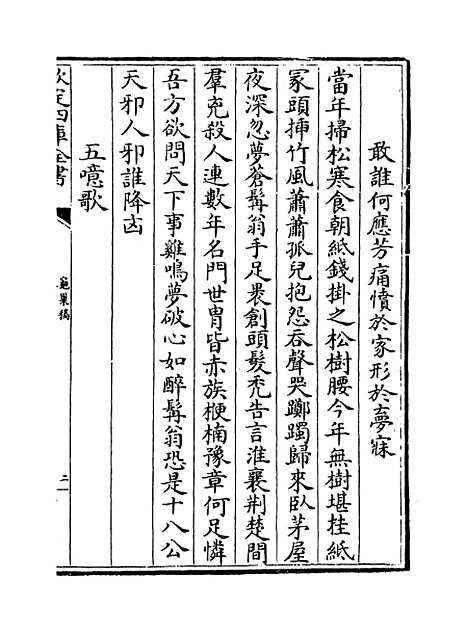 敢誰何應芳痛憤於家形於夢寐
當年掃松寒食朝紙錢掛之松樹腰今年無樹堪挂紙
冢頭揷竹風蕭蕭孤兒抱怨吞聲哭躑躅歸來臥茅屋
夜深忽夢蒼髯翁手足裂創頭髮禿告言淮襄荆楚間
羣兇殺人連數年名門世胄皆赤族楩楠豫章何足憐
吾方欲問天下事雞鳴夢破心如醉髯翁恐是十八公
天邪人邪誰降凶
五噫歌
欽定四庫全書
龜巢稿